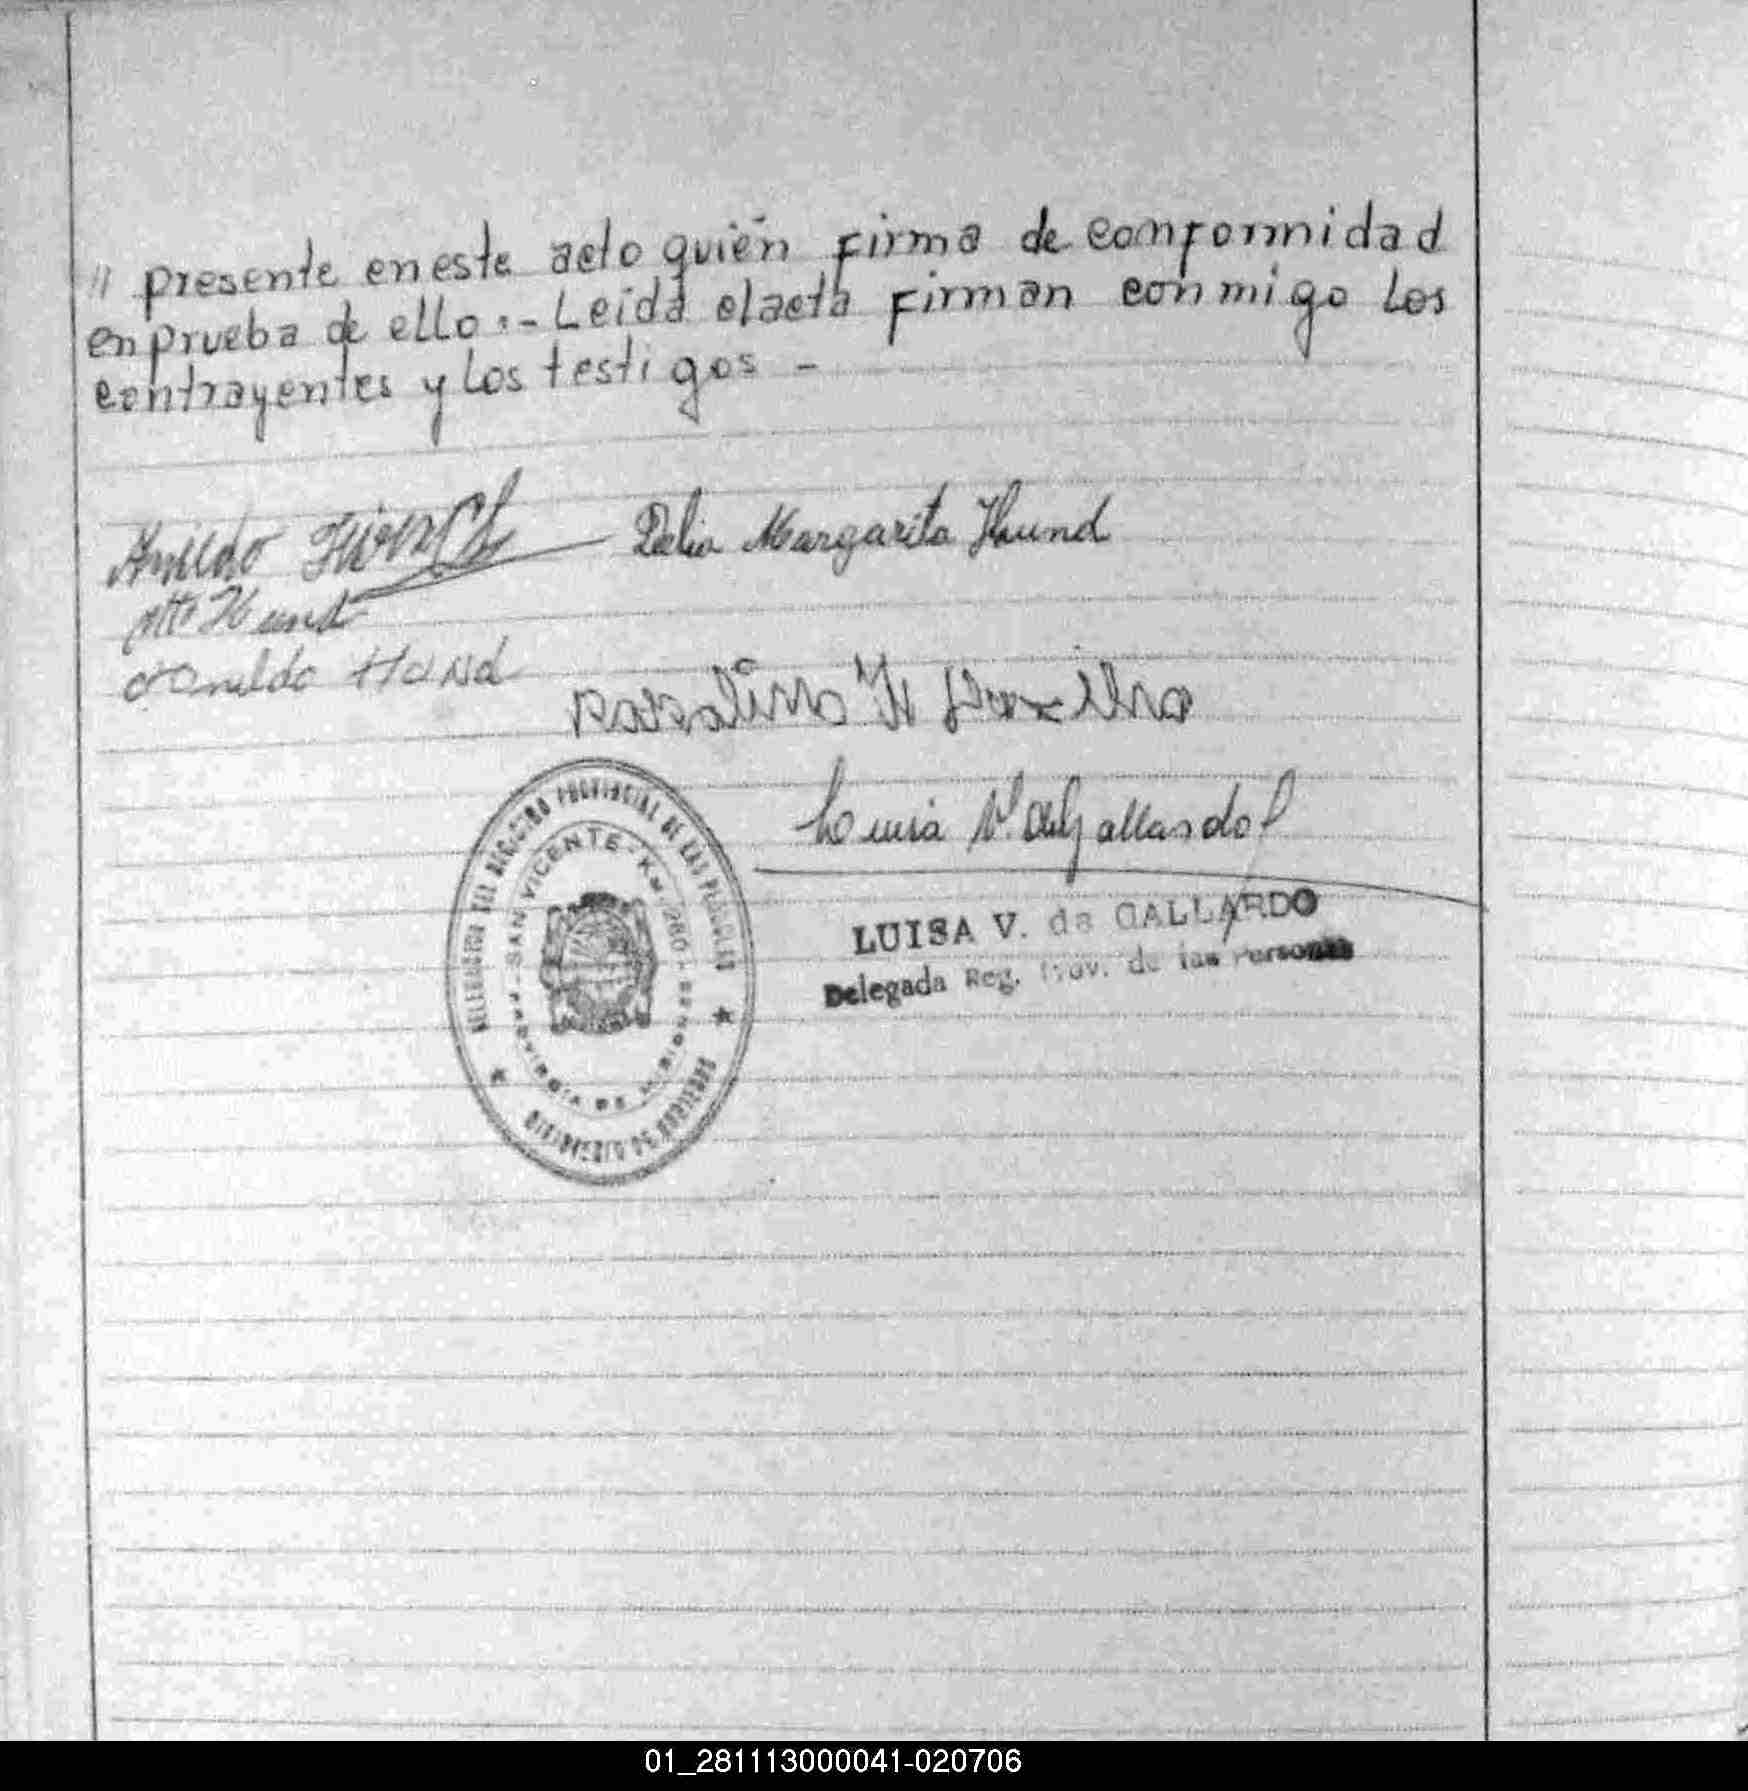 // presente en este acto quién firma de conformidad
en prueba de ello.- Leida el acta firman conmigo los
contrayentes y los testigos -
Delia Margarita Hund
Otto Hund
Hund
Luisa V. de Gallardo
DELEGACION DEL REGISTRO PROVINCIAL DE LAS PERSONAS
SAN VICENTE - Km. 280 -
PROVINCIA DE MISIONES
LUISA V. de GALLARDO
Delegada Reg. Prov. de las Personas
01_281113000041-020706